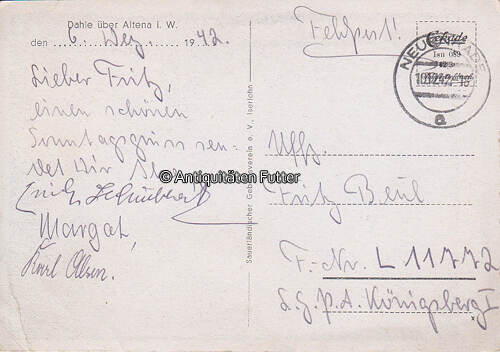 Dahle über Altena i. W.
den 6. Dez. 1942.
Lieber Fritz,
einen schönen
Sonntagsgruss sen-
det Dir
Margat,
Karl
Sauerländischer Gebirgsverein e. V., Iserlohn
© Antiquitäten Futter
Feldpost!
NEUENRADE
a
Uffz.
Fritz Beul
F.-Nr. L 11772
L.G.P.A. Königsberg I
x